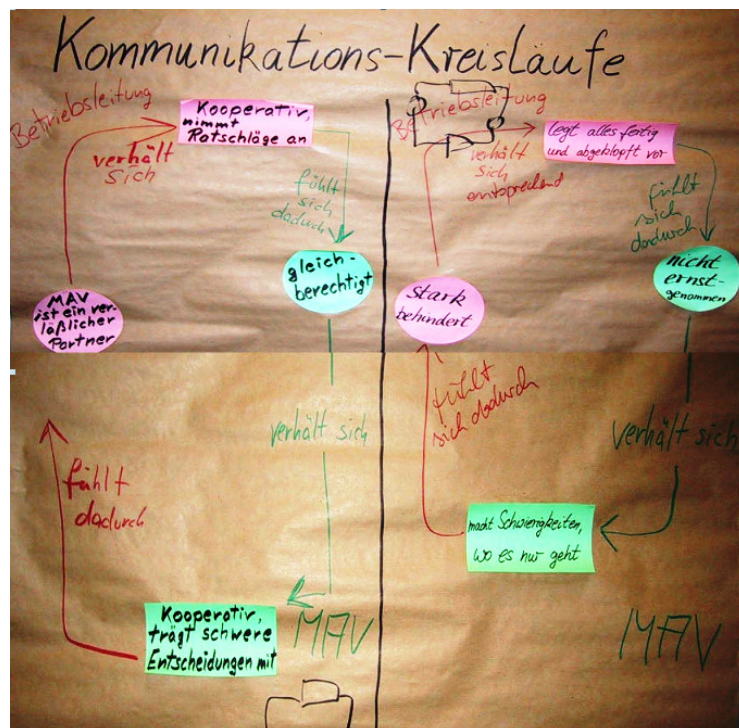 Kommunikations-Kreisläufe
Betriebsleitung
Kooperativ,
nimmt
Ratschläge an
verhält
sich
fühlt
sich
dadurch
gleich-
berechtigt
MAV
ist ein ver-
läßlicher
Partner
verhält sich
fühlt
dadurch
Kooperativ,
trägt schwere
Entscheidungen mit
MAV
Betriebsleitung
legt alles fertig
und abgeklopft vor
verhält
sich
entsprechend
fühlt
sich
dadurch
nicht
ernst-
genommen
stark
behindert
fühlt
sich dadurch
verhält sich
macht Schwierigkeiten,
wo es nur geht
MAV